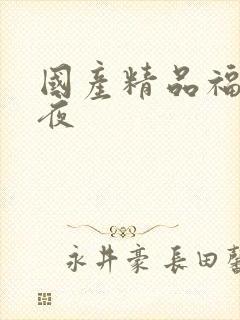 國產精品福
夜
永井豪 長田馨